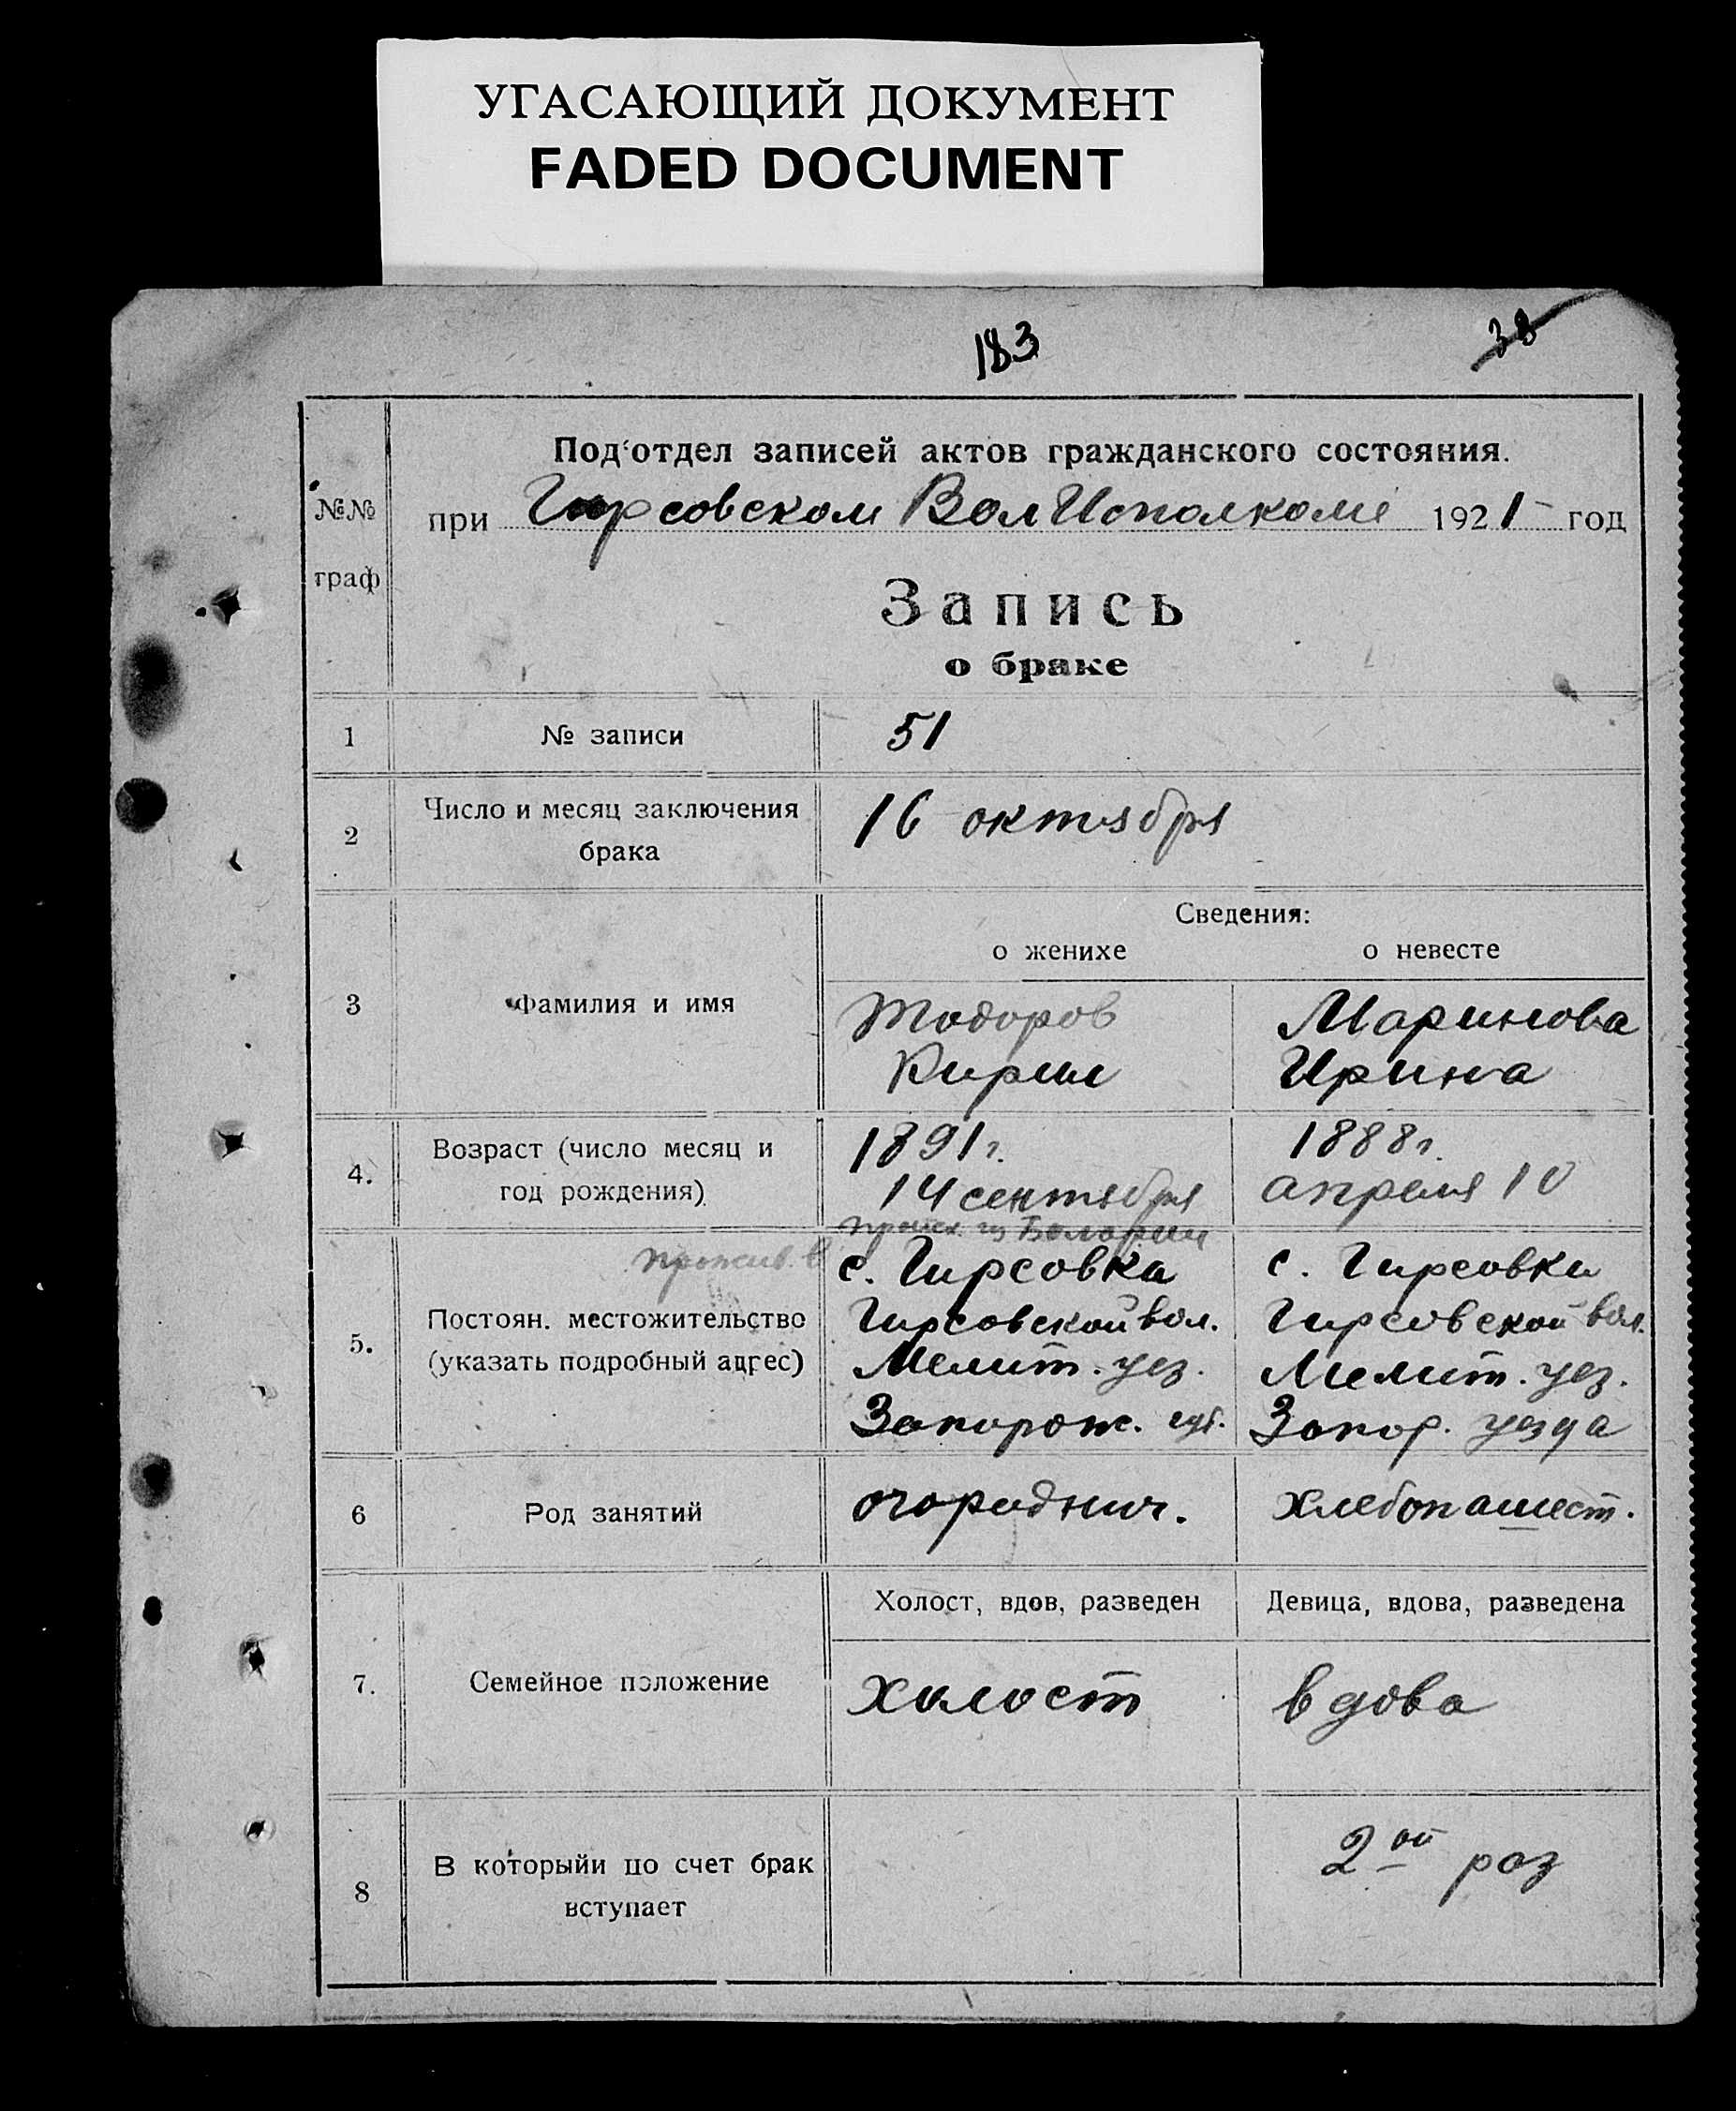 УГАСАЮЩИЙ ДОКУМЕНТ
FADED DOCUMENT
183
38
Подотдел записей актов гражданского состояния.
№№
граф
при Гирсовском ВолИсполкоме 1921 год
Запись
о браке
1
№ записи
51
2
Число и месяц заключения
брака
16 октября
Сведения:
о женихе
о невесте
3
Фамилия и имя
Тодоров
Кирил
Маринова
Ирина
4.
Возраст (число месяц и
год рождения)
1891 г.
14 сентября
1888 г.
апреля 10
5.
Постоян. местожительство
(указать подробный адрес)
происх. из Болгарии
прожив. в с. Гирсовка
Гирсовской вол.
Мелит. уез.
Запорож. губ.
с. Гирсовки
Гирсовской вол.
Мелит. уез.
Запор. уезда
6
Род занятий
огороднич.
хлебопашест.
7.
Семейное положение
Холост, вдов, разведен
Девица, вдова, разведена
холост
вдова
8
В которыйи по счет брак
вступает
2ой раз